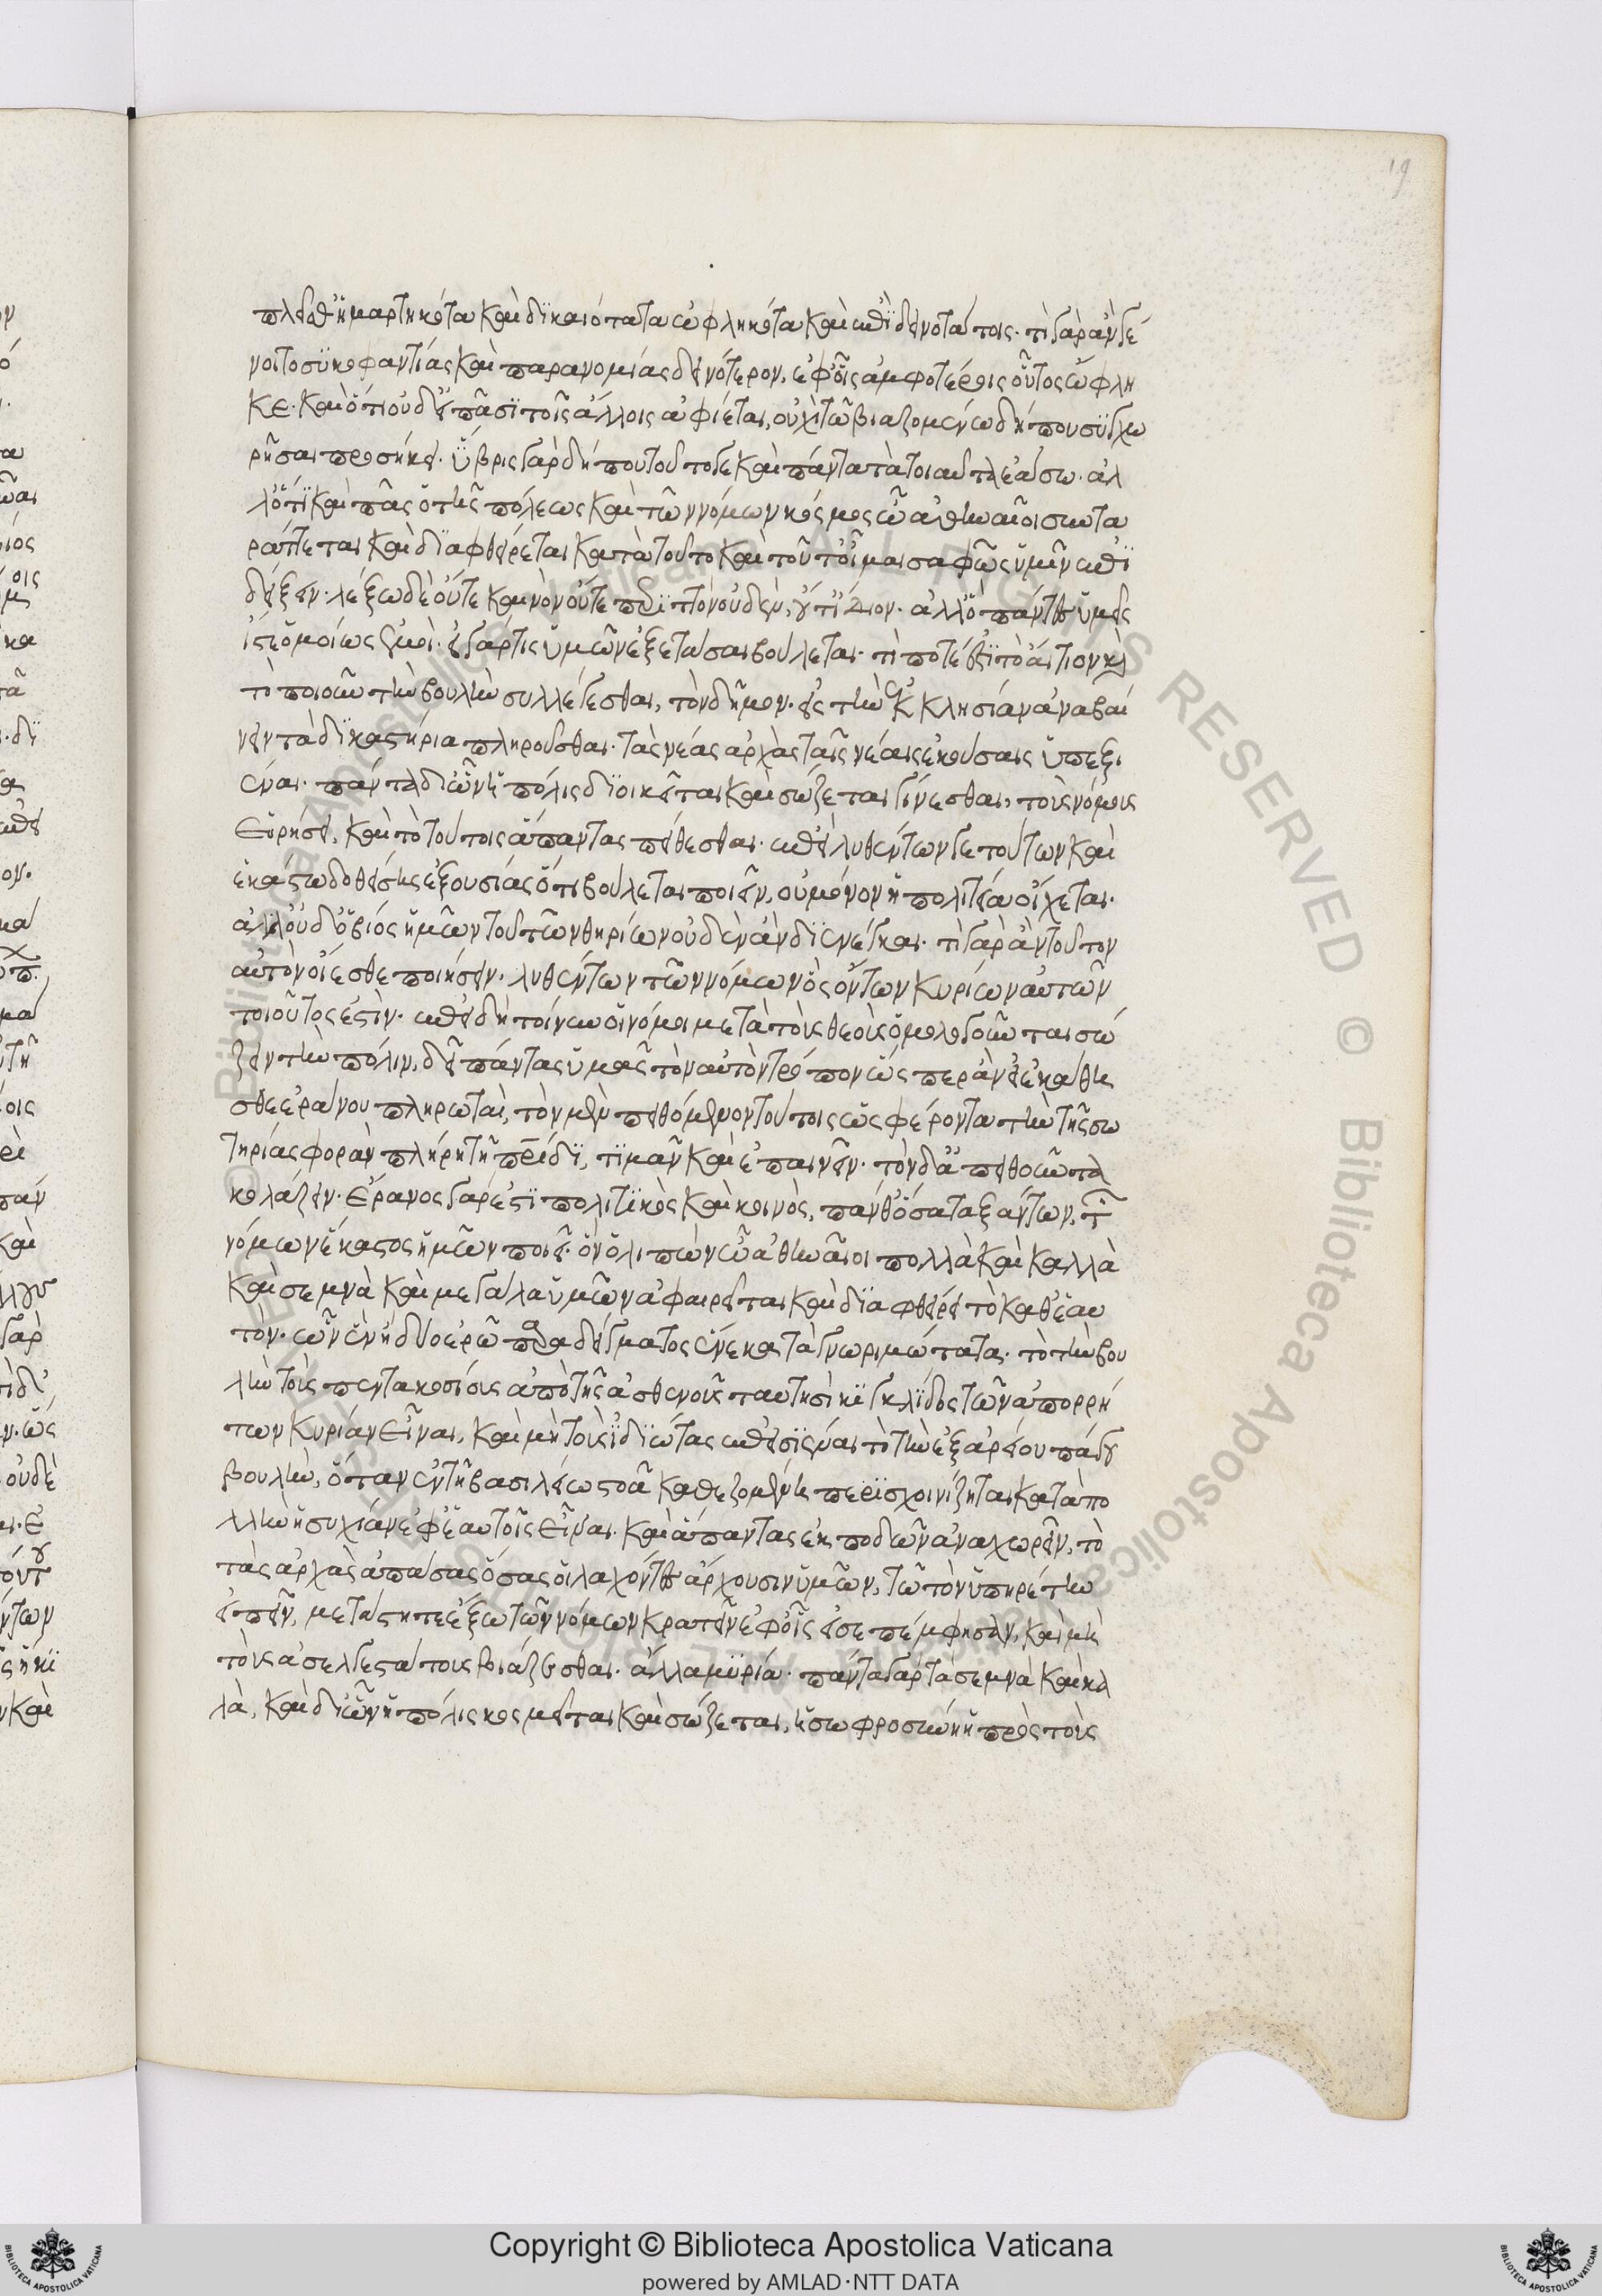 πλεῖσθ' ἡμαρτηκότα καὶ δϊκαιότατα ὠφληκότα καὶ ἐπῒ δεινοτάτοις· τί γὰρ ἂν γέ
νοιτο συκοφαντίας καὶ παρανομίας δεινότερον, ἐφ' οἷς ἀμφοτέροις οὗτος ὤφλη
κε· καὶ ὅτι οὐδ' εἰ πᾶσϊ τοῖς ἄλλοις ἀφίεται, οὐχὶ τῶ βιαζομένω δήπου συγχω
ρῆσαι προσήκει· ὕβρις γὰρ δήπου τοῦτο γε καὶ πάντα τὰ τοιαῦτα ἐάσω· ἀλ
λ' ὅτϊ καὶ πᾶς ὁ τῆς πόλεως καὶ τῶν νόμων κόσμος ὦ ἀθηναῖοι συντα
ράττεται καὶ δϊαφθείρεται κατὰ τοῦτο καὶ τοῦτ' οἶμαι σαφῶς ὑμῖν ἐπϊ
δείξειν· λέξω δὲ οὔτε καινὸν οὔτε περϊττὸν οὐδὲν, οὔτ' ἴδιον· ἀλλ' ὃ πάντες ὑμεῖς
ἴστε ὁμοίως ἐμοὶ· εἰ γάρ τις ὑμῶν ἐξετάσαι βούλεται· τί ποτέ ἐστϊ τὸ αἴτιον καὶ
τὸ ποιοῦν τὴν βουλὴν συλλέγεσθαι, τὸν δῆμον· εἰς τὴν ἐκκλησίαν ἀναβαί
νειν τὰ δϊκαστήρια πληροῦσθαι· τὰς νέας ἀρχὰς ταῖς νέαις ἑκούσαις ὑπεξι
έναι· πάντα δι' ὧν ἡ πόλις δϊοικεῖται καὶ σώζεται γίνεσθαι, τοὺς νόμους
εὑρήσει, καὶ τὸ τούτοις ἅπαντας πείθεσθαι· ἐπεὶ λυθέντων γε τούτων καὶ
ἑκάστω δοθείσης ἐξουσίας ὅτι βούλεται ποιεῖν, οὐ μόνον ἡ πολιτεία οἴχεται·
ἀλλ' οὐδ' ὁ βιὸς ἡμῶν τοῦ τῶν θηρίων οὐδὲν ἂν δϊενέγκαι· τί γὰρ ἂν τοῦτον
αὐτὸν οἴεσθε ποιήσειν· λυθέντων τῶν νόμων ὃς ὄντων κυρίων αὐτῶν
τοιοῦτος ἐστίν· ἐπειδὴ τοίνυν οἱ νόμοι μετὰ τοὺς θεοὺς ὁμολογοῦνται σώ
ζειν τὴν πόλιν, δεῖ πάντας ὑμᾶς τὸν αὐτὸν τρόπον ὥς περ ἂν εἰ κάθη
σθε ἐράνου πληρωταὶ, τὸν μὲν πειθόμενον τούτοις ὡς φέροντα τὴν τῆς σω
τηρίας φορὰν πλήρη τῆ πρίδϊ, τϊμᾶν καὶ ἐπαινεῖν· τὸν δ' ἀπειθοῦντα
κολάζειν· ἔρανος γάρ ἐστϊ πολιτϊκὸς καὶ κοινὸς, πάνθ' ὅσα ταξάντων τῶν
νόμων ἕκαστος ἡμῶν ποιεῖ· ὃν ὁ λιπὼν ὦ ἀθηναῖοι πολλὰ καὶ καλλὰ
καὶ σεμνὰ καὶ μεγάλα ὑμῶν ἀφαιρεῖται καὶ δϊαφθείρει τὸ καθ' ἑαυ
τόν· ὧν ἓν ἢ δύο ἐρῶ παραδείγματος ἕνεκα τὰ γνωριμώτατα· τὸ τὴν βου
λὴν τοὺς πεντακοσίους ἀπὸ τῆς ἀσθενοῦς ταυτησὶ κϊγκλίδος τῶν ἀπορρή
των κυρίαν εἶναι, καὶ μὴ τοὺς ἰδϊώτας ἐπεισϊέναι τὸ τὴν ἐξ ἀρείου πάγου
βουλὴν, ὅταν ἐν τῆ βασιλείω στοᾶ καθεζομένη περϊσχοινίζηται κατὰ πο
λλὴν ἡσυχίαν ἐφ' ἑαυτοῖς εἶναι· καὶ ἅπαντας ἐκ ποδῶν ἀναχωρεῖν, τὸ
τὰς ἀρχὰς ἁπάσας ὅσας οἱ λαχόντες ἄρχουσιν ὑμῶν, τῶ τὸν ὑπηρέτην
εἰπεῖν, μετάστητε ἔξω τῶν νόμων κρατεῖν ἐφ' οἷς εἰσεπέμφησαν, καὶ μὴ
τοὺς ἀσελγεστάτους βιάζεσθαι· ἄλλα μϋρία· πάντα γὰρ τὰ σεμνὰ καὶ κα
λὰ, καὶ δι' ὧν ἡ πόλις κοσμεῖται καὶ σώζεται, ἡ σωφροσύνη ἡ πρὸς τοὺς
19
© Biblioteca Apostolica Vaticana
ALL RIGHTS RESERVED
Copyright © Biblioteca Apostolica Vaticana
powered by AMLAD·NTT DATA